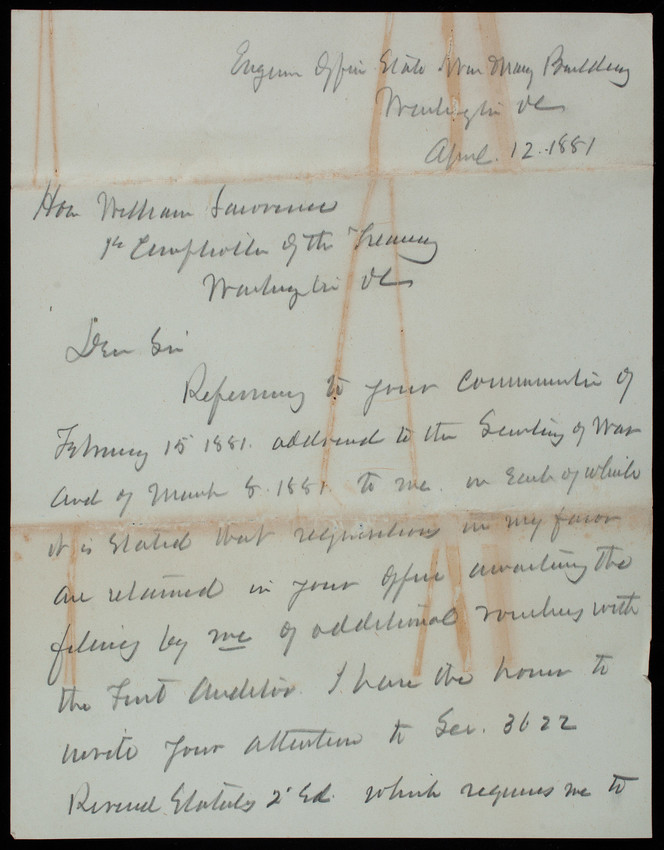 Engineer Office State War & Navy Building
Washington DC
April 12. 1881
Hon William Lawrence
1st Comptroller of the Treasury
Washington DC
Dear Sir
Referring to your communication of
February 15 1881. addressed to the Secretary of War
and of March 8. 1881 to me. in each of which
it is stated that requisitions in my favor
are retained in your office awaiting the
filing by me of additional vouchers with
the First Auditor. I have the honor to
invite your attention to Sec. 3622
Revised Statutes 2d Ed. which requires me to